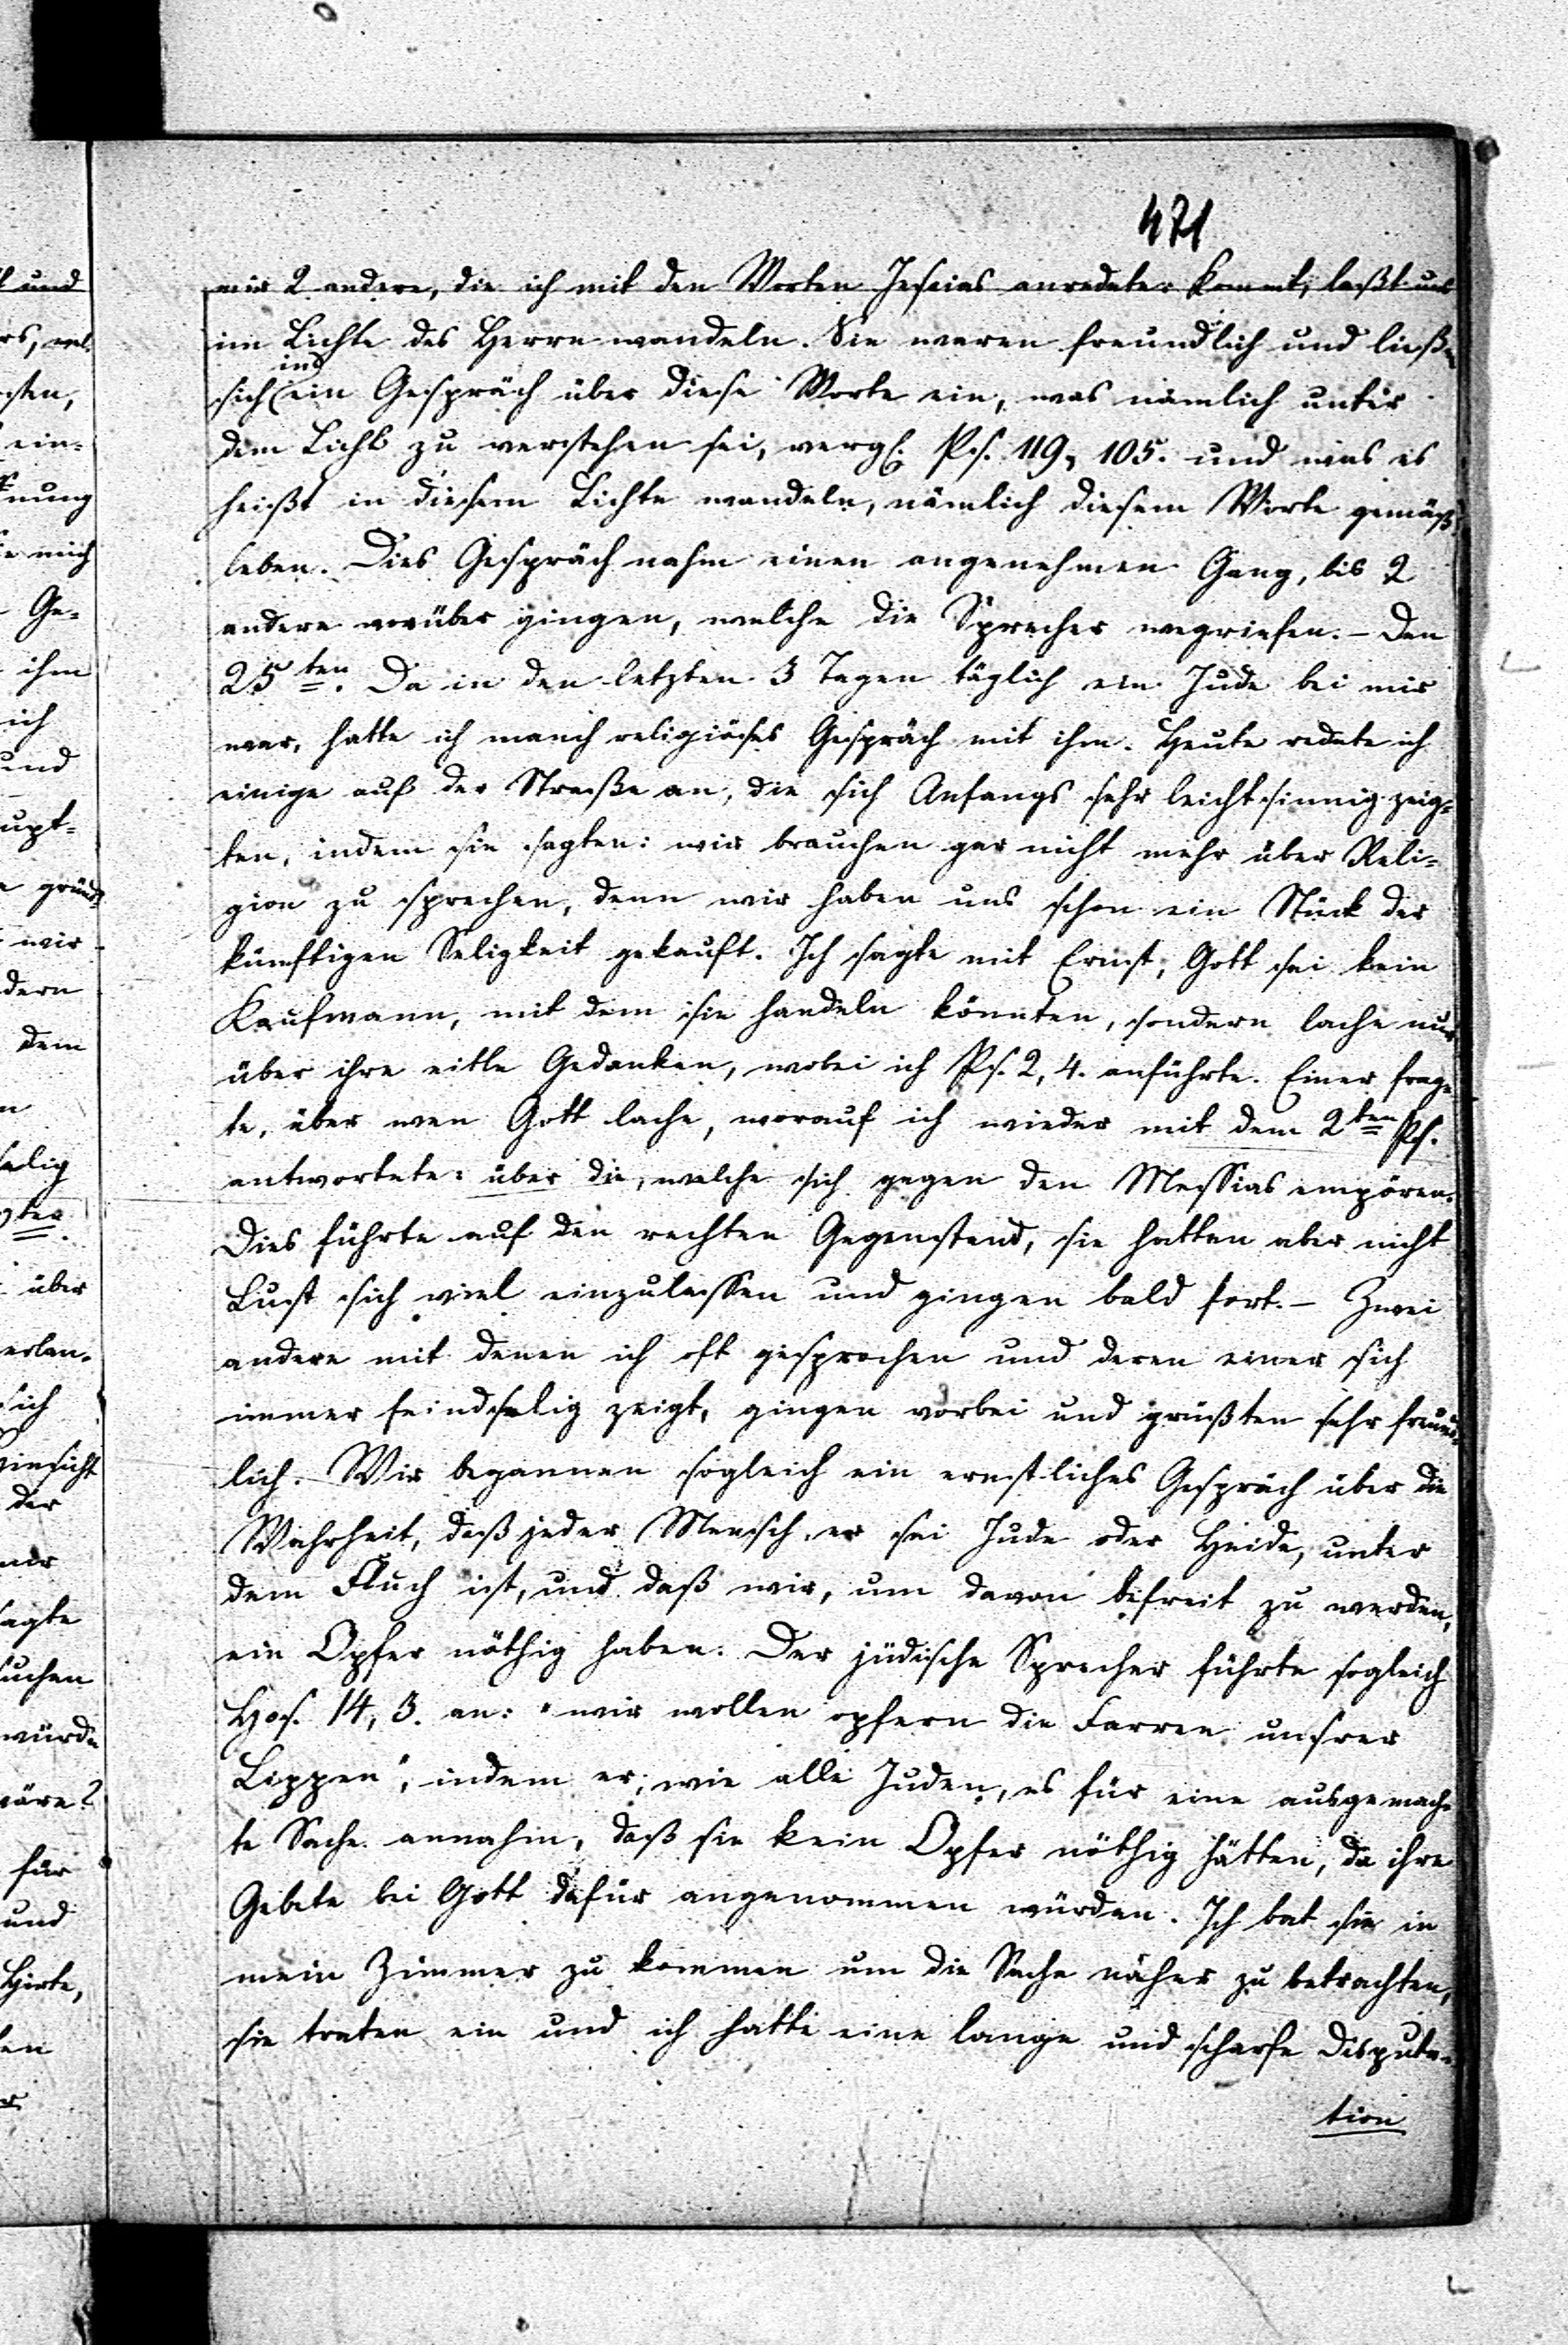 471
mir 2 andere, die ich mit den Worten Jesaias anredete: kommt, laßt uns
im Lichte des Herrn wandeln. Sie waren freundlich und ließen
ins
sich ein Gespräch über diese Worte ein, was nämlich unter
dem Licht zu verstehen sei, vergl. Ps. 119, 105. und was es
heißt in diesem Lichte wandeln, nämlich diesem Worte gemäß
leben. Dies Gespräch nahm einen angenehmen Gang, bis 2
andere vorüber gingen, welche die Sprecher wegriefen. – Den
25ten. Da in den letzten 3 Tagen täglich ein Jude bei mir
war, hatte ich manch religiöses Gespräch mit ihm. Heute redete ich
einige auf der Straße an, die sich Anfangs sehr leichtsinnig zeig=
ten, indem sie sagten: wir brauchen gar nicht mehr über Reli=
gion zu sprechen, denn wir haben uns schon ein Stück der
künftigen Seligkeit gekauft. Ich sagte mit Ernst, Gott sei kein
Kaufmann, mit dem sie handeln könnten, sondern lache nur
über ihre eitle Gedanken, wobei ich Ps. 2, 4. anführte. Einer frag=
te, über wen Gott lache, worauf ich wieder mit dem 2ten Ps.
antwortete: über die, welche sich gegen den Messias empören.
Dies führte auf den rechten Gegenstand, sie hatten aber nicht
Lust sich viel einzulassen und gingen bald fort. – Zwei
andere mit denen ich oft gesprochen und deren einer sich
immer feindselig zeigt, gingen vorbei und grüßten sehr freund=
lich. Wir begannen sogleich ein ernstliches Gespräch über die
Wahrheit, daß jeder Mensch, er sei Jude oder Heide, unter
dem Fluch ist, und daß wir, um davon befreit zu werden,
ein Opfer nöthig haben. Der jüdische Sprecher führte sogleich
Hos. 14, 3. an: "wir wollen opfern die Farren unsrer
Lippen", indem er, wie alle Juden, es für eine ausgemach=
te Sache annahm, daß sie kein Opfer nöthig hätten, da ihre
Gebete bei Gott dafür angenommen würden. Ich bat sie in
mein Zimmer zu kommen um die Sache näher zu betrachten,
sie traten ein und ich hatte eine lange und scharfe Disputa=
tion